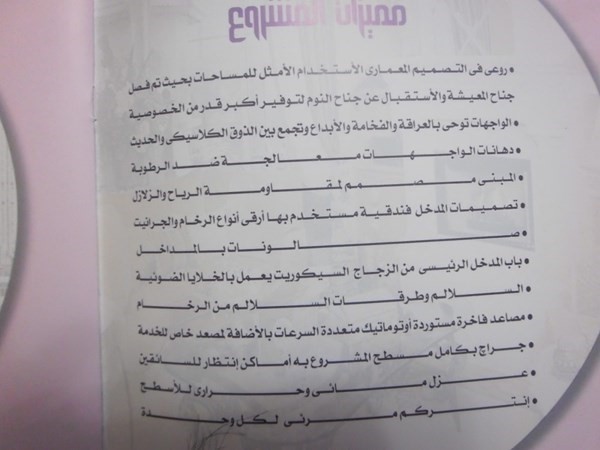 مميزات المشروع
• روعى فى التصميم المعمارى الأستخدام الأمثل للمساحات بحيث تم فصل
جناح المعيشة والأستقبال عن جناح النوم لتوفير أكبر قدر من الخصوصية
• الواجهات توحى بالعراقة والفخامة والأبداع وتجمع بين الذوق الكلاسيكى والحديث
• دهانات الواجهات معالجة ضد الرطوبة
• المبنى مصمم لمقاومة الرياح والزلازل
• تصميمات المدخل فندقية مستخدم بها أرقى أنواع الرخام والجرانيت
• صالونات بالمداخل
• باب المدخل الرئيسى من الزجاج السيكوريت يعمل بالخلايا الضوئية
• السلالم وطرقات السلالم من الرخام
• مصاعد فاخرة مستوردة أوتوماتيك متعددة السرعات بالأضافة لمصعد خاص للخدمة
• جراج بكامل مسطح المشروع به أماكن إنتظار للسائقين
• عزل مائى وحرارى للأسطح
• إنتركم مرئى لكل وحدة